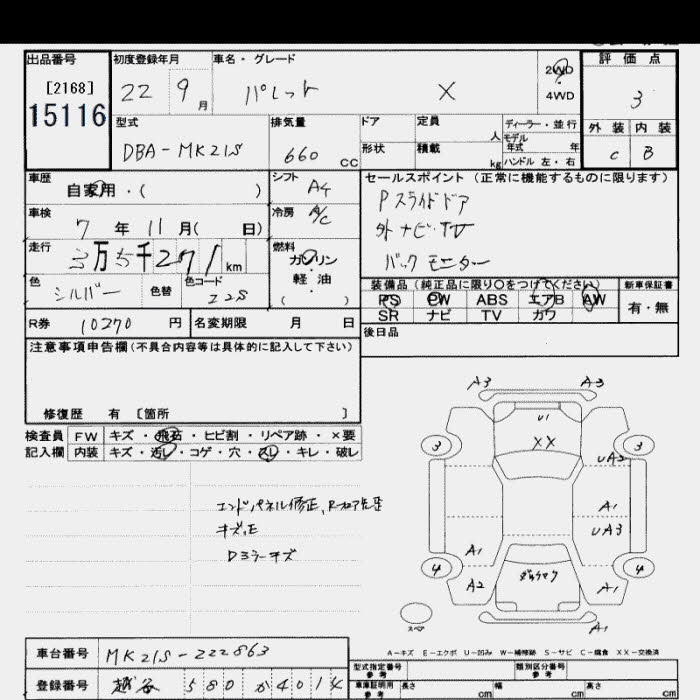 出品番号
[2168]
15116
初度登録年月
22 9 月
車名・グレード
パレット X
2WD
4WD
評価点
3
外装 内装
C B
型式
DBA-MK21S
排気量
660 CC
ドア
形状
定員
人
積載
kg
ディーラー・並行
モデル
年式 年
ハンドル 左・右
車歴
自家用・( )
シフト
A4
セールスポイント (正常に機能するものに限ります)
Pスライドドア
外ナビ・TV
バックモニター
車検
7 年 11 月( 日)
冷房
A/C
走行
3万5千271 km
燃料
ガソリン
・
軽油
( )
色
シルバー
色替
色コード
Z2S
装備品(純正品に限り○をつけてください)
PS PW ABS エアB AW
SR ナビ TV カワ
新車保証書
有・無
R券 10270 円
名変期限 月 日
後日品
注意事項申告欄(不具合内容等は具体的に記入して下さい)
修復歴 有 〔箇所 〕
検査員
記入欄
FW キズ・飛石・ヒビ割・リペア跡・×要
内装 キズ・汚レ・コゲ・穴・スレ・キレ・破レ
エンドパネル修正、Rフロア先歪
キズ、E
Dミラーキズ
A3 A3
U1
XX
3 3
UA2
A1
UA3
A1
4 4
A2 A1
A1
スペア
A-キズ E-エクボ U-凹み W-補修跡 S-サビ C-腐食 XX-交換済
車台番号
MK21S-222863
登録番号
越谷 580 か 4014
型式指定番号
参考
類別区分番号
参考
車庫証明用
参考
長さ cm
幅 cm
高さ cm